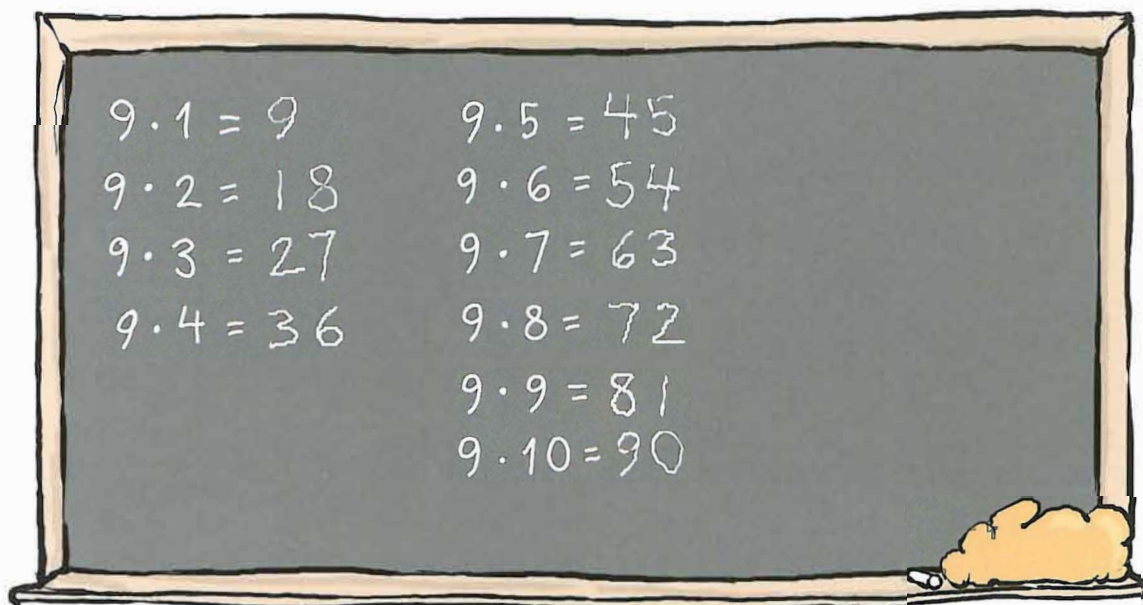 9 · 1 = 9
9 · 2 = 18
9 · 3 = 27
9 · 4 = 36
9 · 5 = 45
9 · 6 = 54
9 · 7 = 63
9 · 8 = 72
9 · 9 = 81
9 · 10 = 90